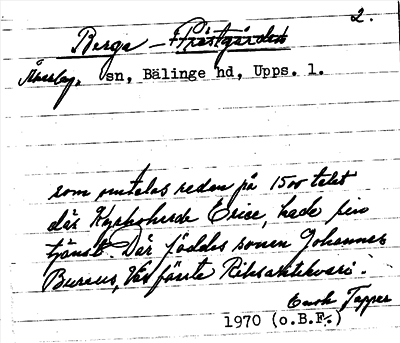 2.
Berga - Prästgården
Åkerby, sn, Bälinge hd, Upps. l.
som omtalas redan på 1500 talet
där Kyrkoherde Erice, hade sin
tjänst. Där föddes sonen Johannes
Bureus, Vår förste Riksantikvarie.
Enok Tapper
1970 (o.B.F.)